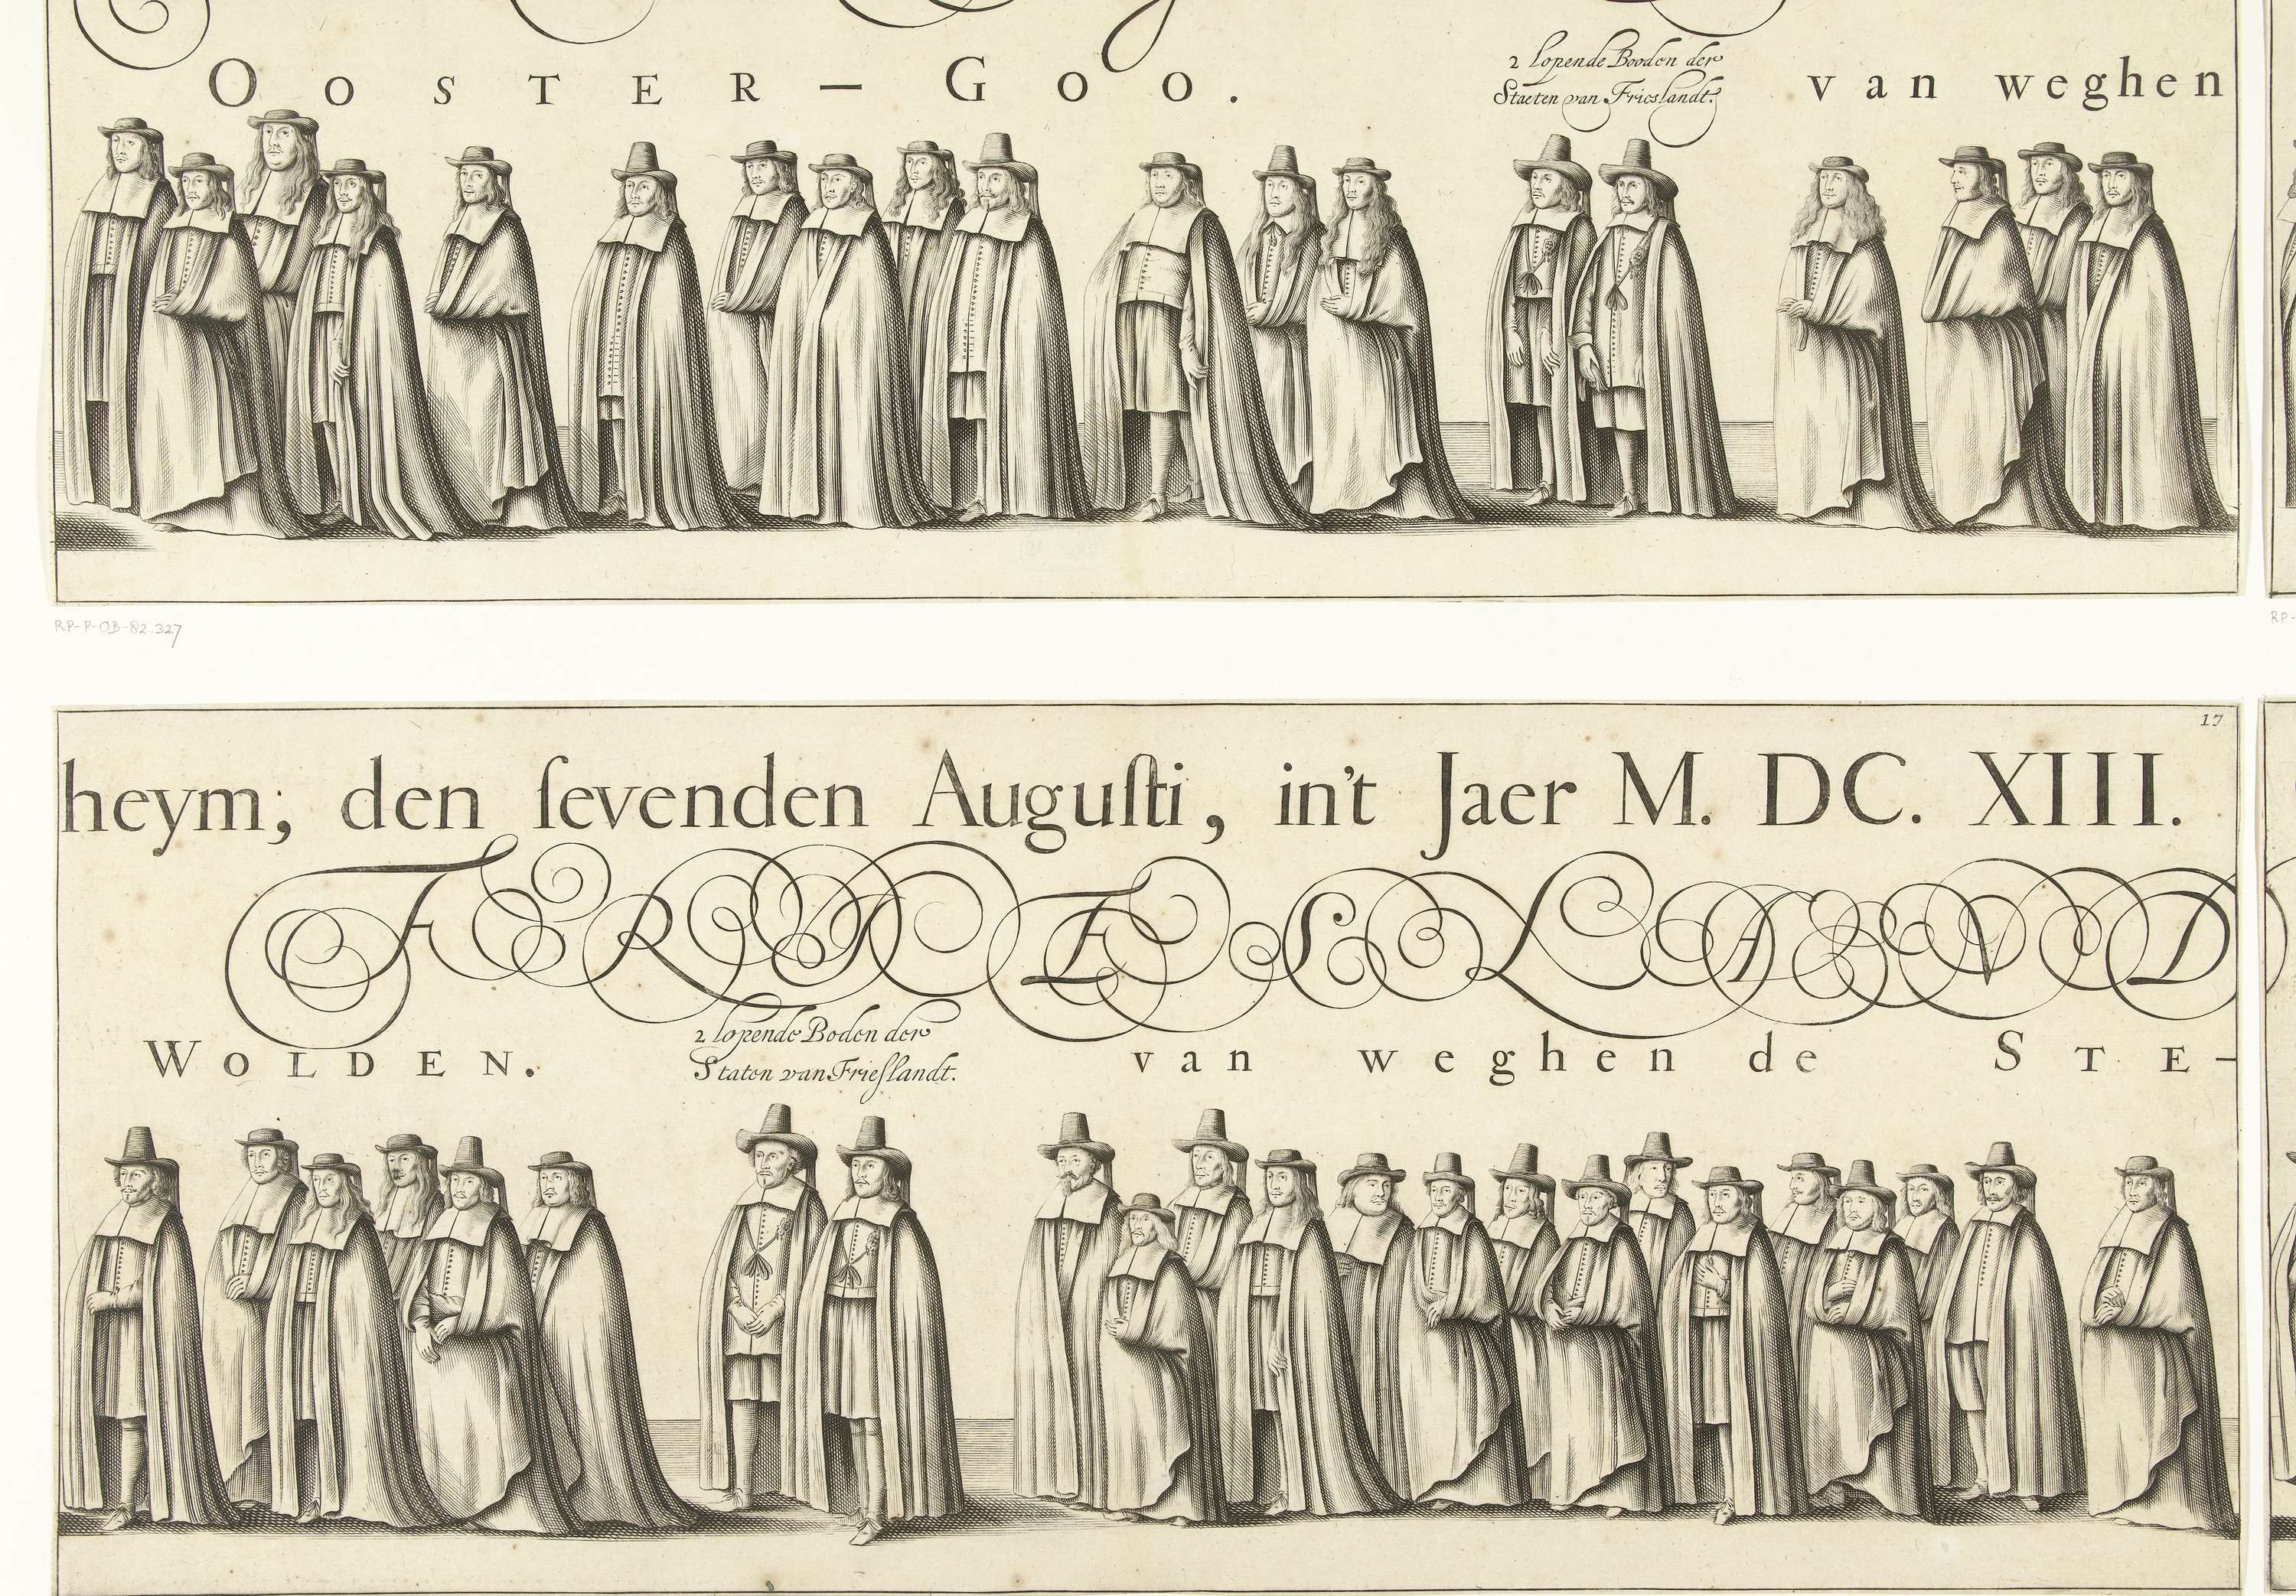 OOSTER-GOO.
2 lopende Booden der
Staeten van Frieslandt.
van weghen
RP-P-OB-82.327
RP-
17
heym; den ſevenden Auguſti, in't Jaer M. DC. XIII.
WOLDEN.
2 lopende Boden der
Staten van Frieſlandt.
van weghen de STE-